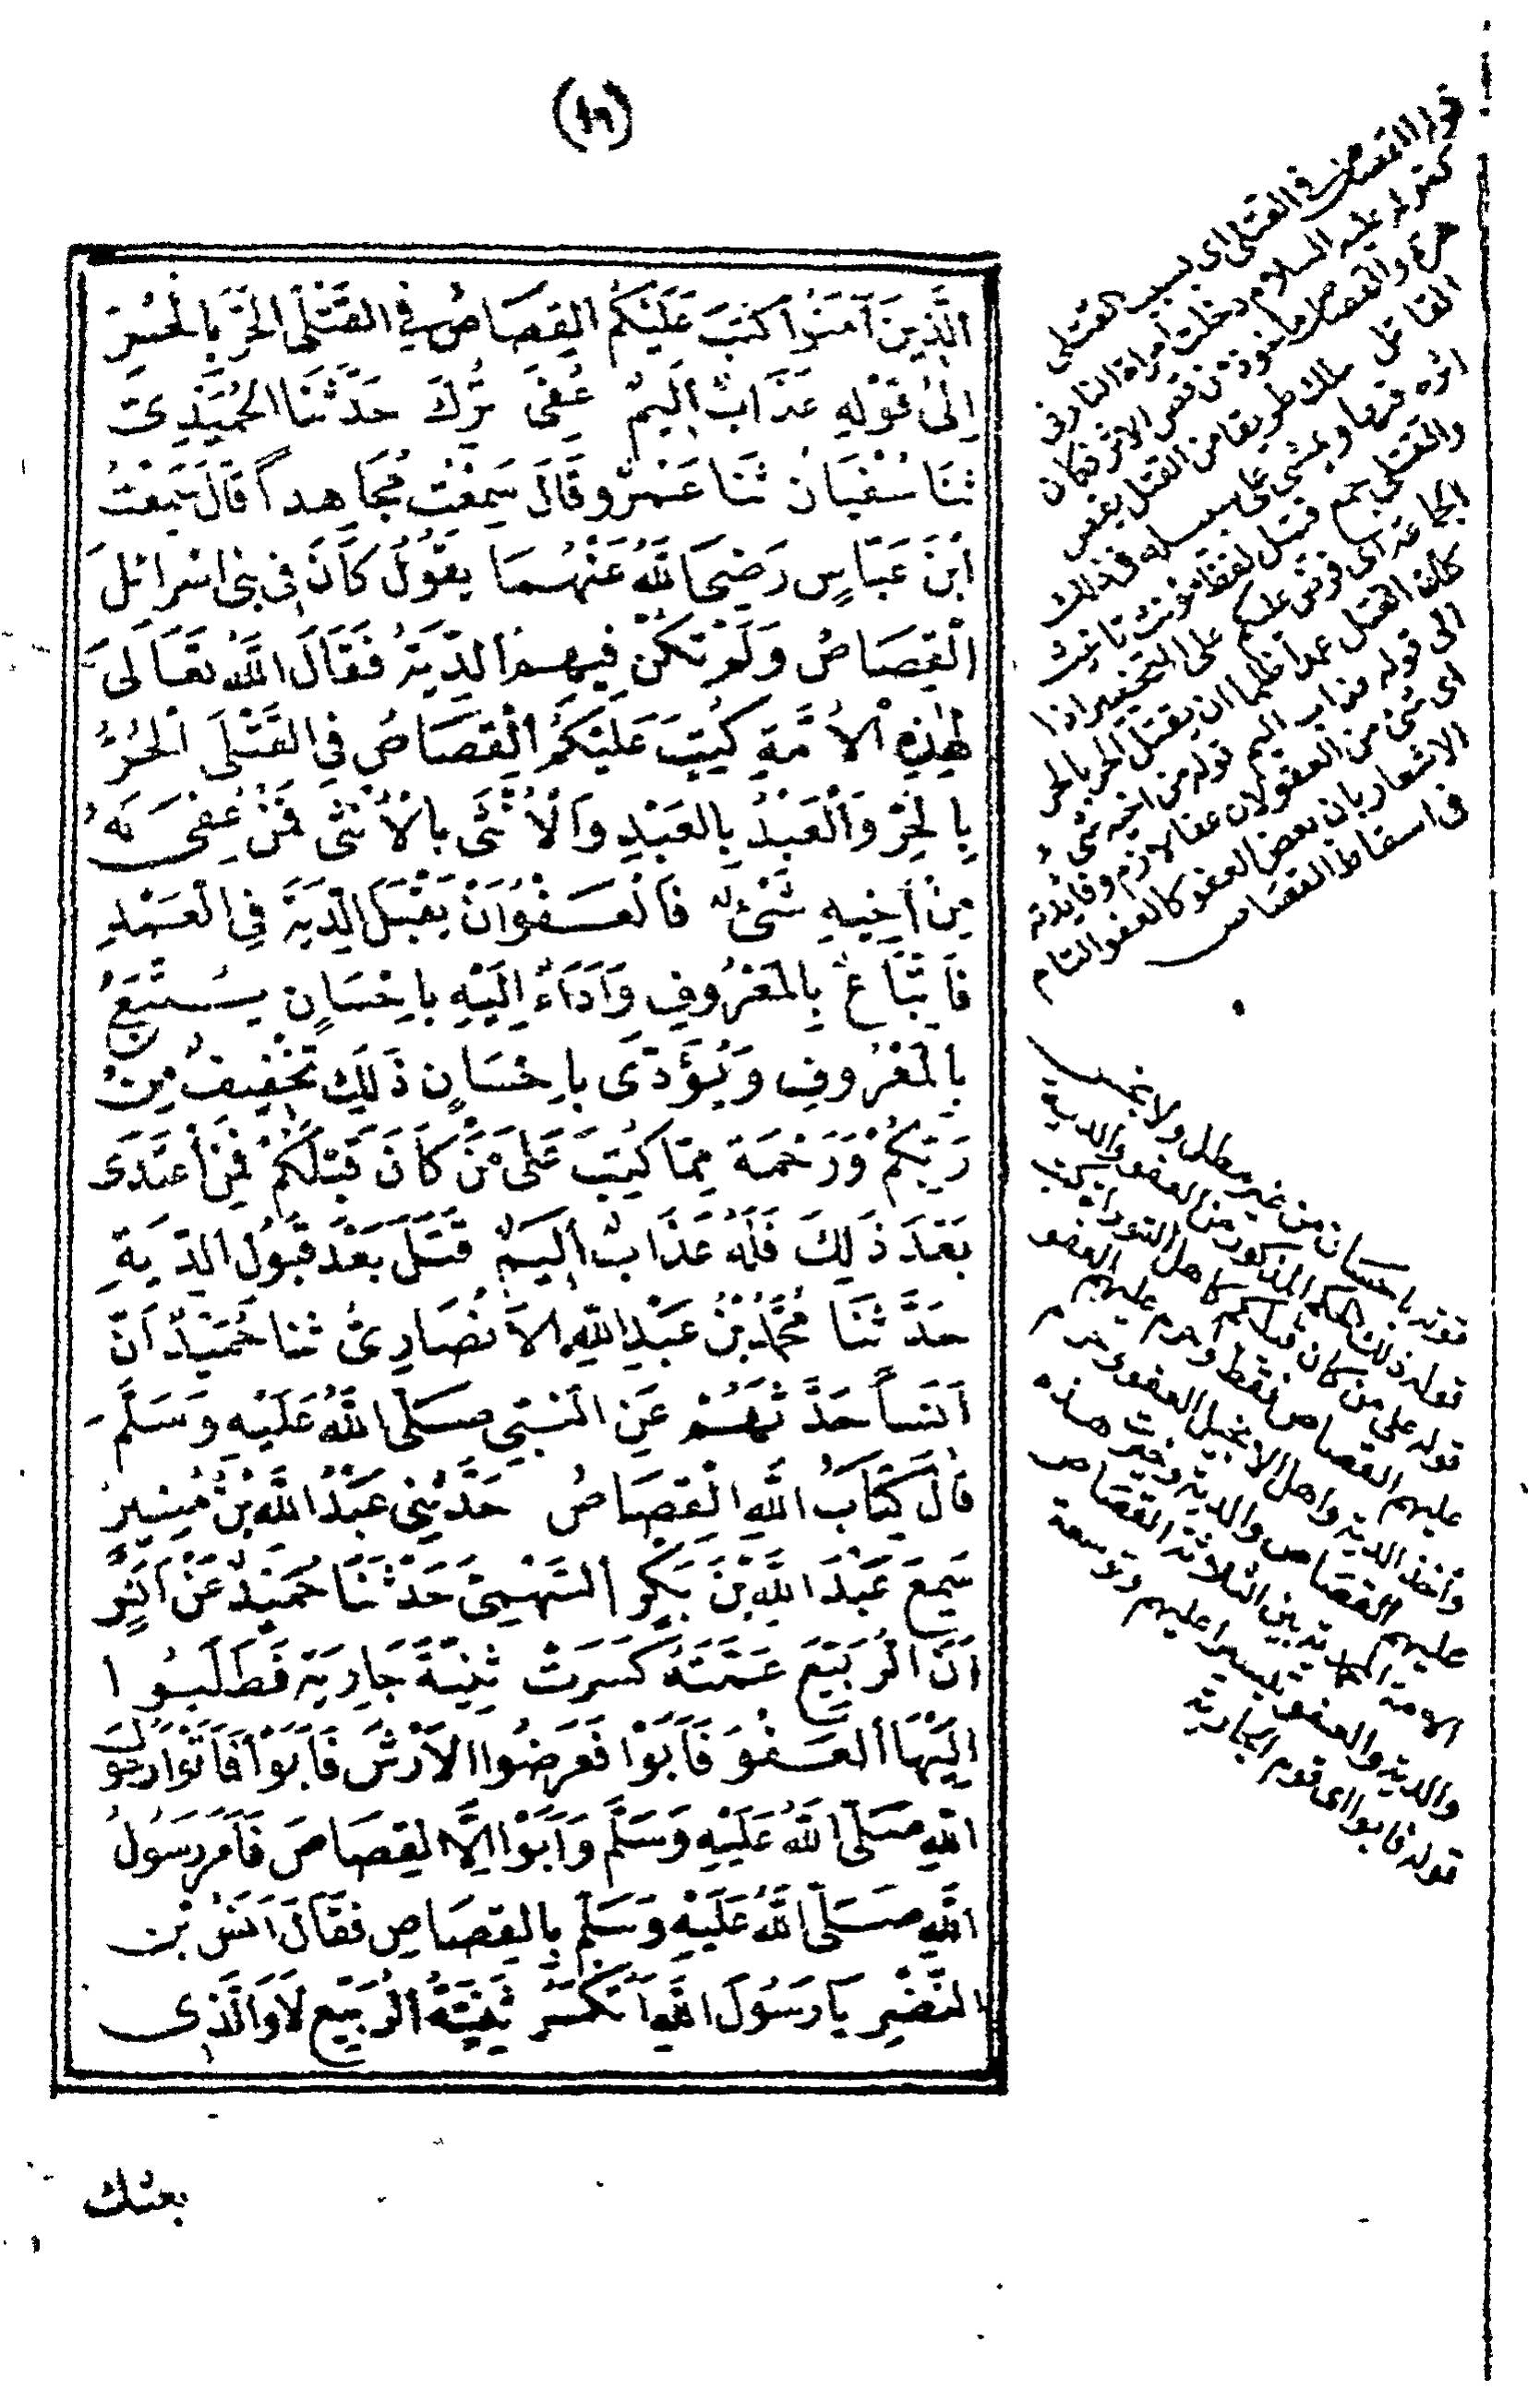 (١٩)
الَّذِينَ آمَنُوا كُتِبَ عَلَيْكُمُ القِصَاصُ فِي القَتْلَى الحُرُّ بِالحُرِّ
اِلىٰ قَوْلِهِ عَذَابٌ اَلِيمٌ عُفِىَ تُرِكَ حَدَّثَنَا الحُمَيْدِىُّ
ثَنَا سُفْيَانُ ثَنَا عَمْرٌو قَالَ سَمِعْتُ مُجَاهِداً قَالَ سَمِعْتُ
ابْنَ عَبَّاسٍ رَضِىَ اللّٰهُ عَنْهُمَا يَقُولُ كَانَ فِى بَنِى اسْرَائِلَ
الْقِصَاصُ وَلَمْ تَكُنْ فِيهِمُ الدِّيَةُ فَقَالَ اللّٰهُ تَعَالَىٰ
لِهٰذِهِ الْاُمَّةِ كُتِبَ عَلَيْكُمُ الْقِصَاصُ فِي القَتْلَى اَلْحُرُّ
بِالْحُرِّ وَالْعَبْدُ بِالعَبْدِ وَالْاُنْثَى بِالْاُنْثَى فَمَنْ عُفِىَ لَهُ
مِنْ أَخِيهِ شَىْءٌ فَالْعَفْوُ اَنْ يَقْبَلَ الدِّيَةَ فِي الْعَمْدِ
فَاتِّبَاعٌ بِالْمَعْرُوفِ وَاَدَاءٌ اِلَيْهِ بِاِحْسَانٍ يَتَّبِعُ
بِالْمَعْرُوفِ وَيُؤَدِّى بِاِحْسَانٍ ذَلِكَ تَخْفِيفٌ مِنْ
رَبِّكُمْ وَرَحْمَة مِمَّا كُتِبَ عَلَى مَنْ كَانَ قَبْلَكُمْ فَمَنِ اعْتَدَى
بَعْدَ ذَلِكَ فَلَهُ عَذَابٌ اَلِيمٌ قَتَلَ بَعْدَ قَبُولِ الدِّيَةِ
حَدَّثَنَا مُحَمَّدُ بْنُ عَبْدِ اللّٰهِ الاَنْصَارِىُّ ثنا حُمَيْدٌ اَنَّ
اَنَساً حَدَّثَهُمْ عَنِ النَّبِىِّ صَلَّى اللّٰهُ عَلَيْهِ وَسَلَّمَ
قَالَ كِتَابُ اللّٰهِ الْقِصَاصُ حَدَّثَنِى عَبْدُ اللّٰهِ بْنُ مُنِيرٍ
سَمِعَ عَبْدَ اللّٰهِ بْنَ بَكْرٍ السَّهْمِىَّ حَدَّثَنَا حُمَيْدٌ عَنْ اَنَسٍ
اَنَّ الرُّبَيِّعَ عَمَّتَهُ كَسَرَتْ ثَنِيَّةَ جَارِيَةٍ فَطَلَبُوا
اِلَيْهَا الْعَفْوَ فَاَبَوْا فَعَرَضُوا الاَرْشَ فَاَبَوْا فَاَتَوْا رَسُولَ
اللّٰهِ صَلَّى اللّٰهُ عَلَيْهِ وَسَلَّمَ وَاَبَوْا اِلَّا الْقِصَاصَ فَاَمَرَ رَسُولُ
اللّٰهِ صَلَّى اللّٰهُ عَلَيْهِ وَسَلَّمَ بِالْقِصَاصِ فَقَالَ اَنَسُ بْنُ
النَّضْرِ يَا رَسُولَ اللّٰهِ اَتُكْسَرُ ثَنِيَّةُ الرُّبَيِّعِ لَا وَالَّذِى
بعثك
قوله القصاص فى القتلى اى بسبب القتلى
كقوله عليه السلام دخلت امرأة النار فى
هرة والقصاص مأخوذ من قص الاثر فكان
القاتل سلك طريقا من القتل يقص
اثره فيها ويمشى على سبيله فى ذلك
والقتلى جمع قتيل لفظ مؤنث تأنيث
الجماعة اى فرض عليكم على التخيير اذا
كان القتل عمدا ظلما ان يقتل الحر بالحر
الى قوله عذاب اليم قوله من اخيه شىء
اى شىء من العفو لان عفا لازم وفائدته
الاشعار بان بعض العفو كالعفو التام
فى اسقاط القصاص
قوله باحسان من غير مطل ولا بخس
قوله ذلك الحكم المذكور من العفو والدية
قوله على من كان قبلكم كاهل التوراة كتب
عليهم القصاص فقط وحرم عليهم العفو
واخذ الدية واهل الانجيل العفو وحرم
عليهم القصاص والدية وخيرت هذه
الامة المحمدية بين الثلاثة القصاص
والدية والعفو تيسيرا عليهم وتوسعة
قوله فابوا اى قوم الجارية